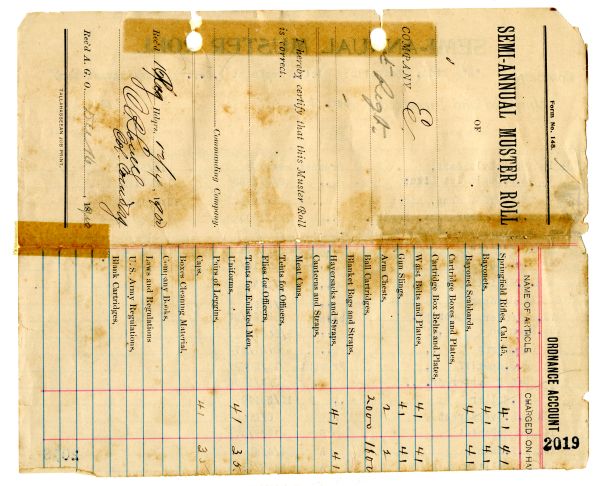 Form No. 148.
SEMI-ANNUAL MUSTER ROLL
OF
COMPANY E
Regt.
I hereby certify that this Muster Roll
is correct.
Commanding Company.
Rec'd Bdqrs. 12/14 1900
Col. Comdg
Rec'd A. G. O.
TALLAHASSEEAN JOB PRINT.
ORDNANCE ACCOUNT
2019
NAME OF ARTICLE CHARGED ON HA
Springfield Rifles, Cal. 45, 41 41
Bayonets, 41 41
Bayonet Scabbards, 41 41
Cartridge Boxes and Plates,
Cartridge Box Belts and Plates,
Waist Belts and Plates, 41 41
Gun Slings, 41 41
Arm Chests, 2 2
Ball Cartridges, 2000 1600
Blanket Bags and Straps,
Haversacks and Straps, 41 41
Canteens and Straps,
Meat Cans,
Tents for Officers,
Flies for Officers,
Tents for Enlisted Men,
Uniforms, 41 35
Pairs of Leggins,
Caps, 41 35
Boxes Cleaning Material,
Company Books,
Laws and Regulations
U. S. Army Regulations,
Blank Cartridges,